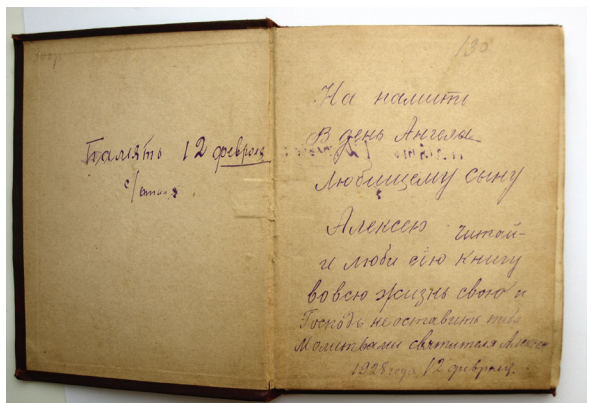 Память 12 февраля
с/стиля
130
На памить
В день Ангела
Любищему сыну
Алексею читай-
и люби сію книгу
во всю жизнь свою и
Господь не оставить тебя
Молитвами святителя Алексея
1925 года 12 февраля.